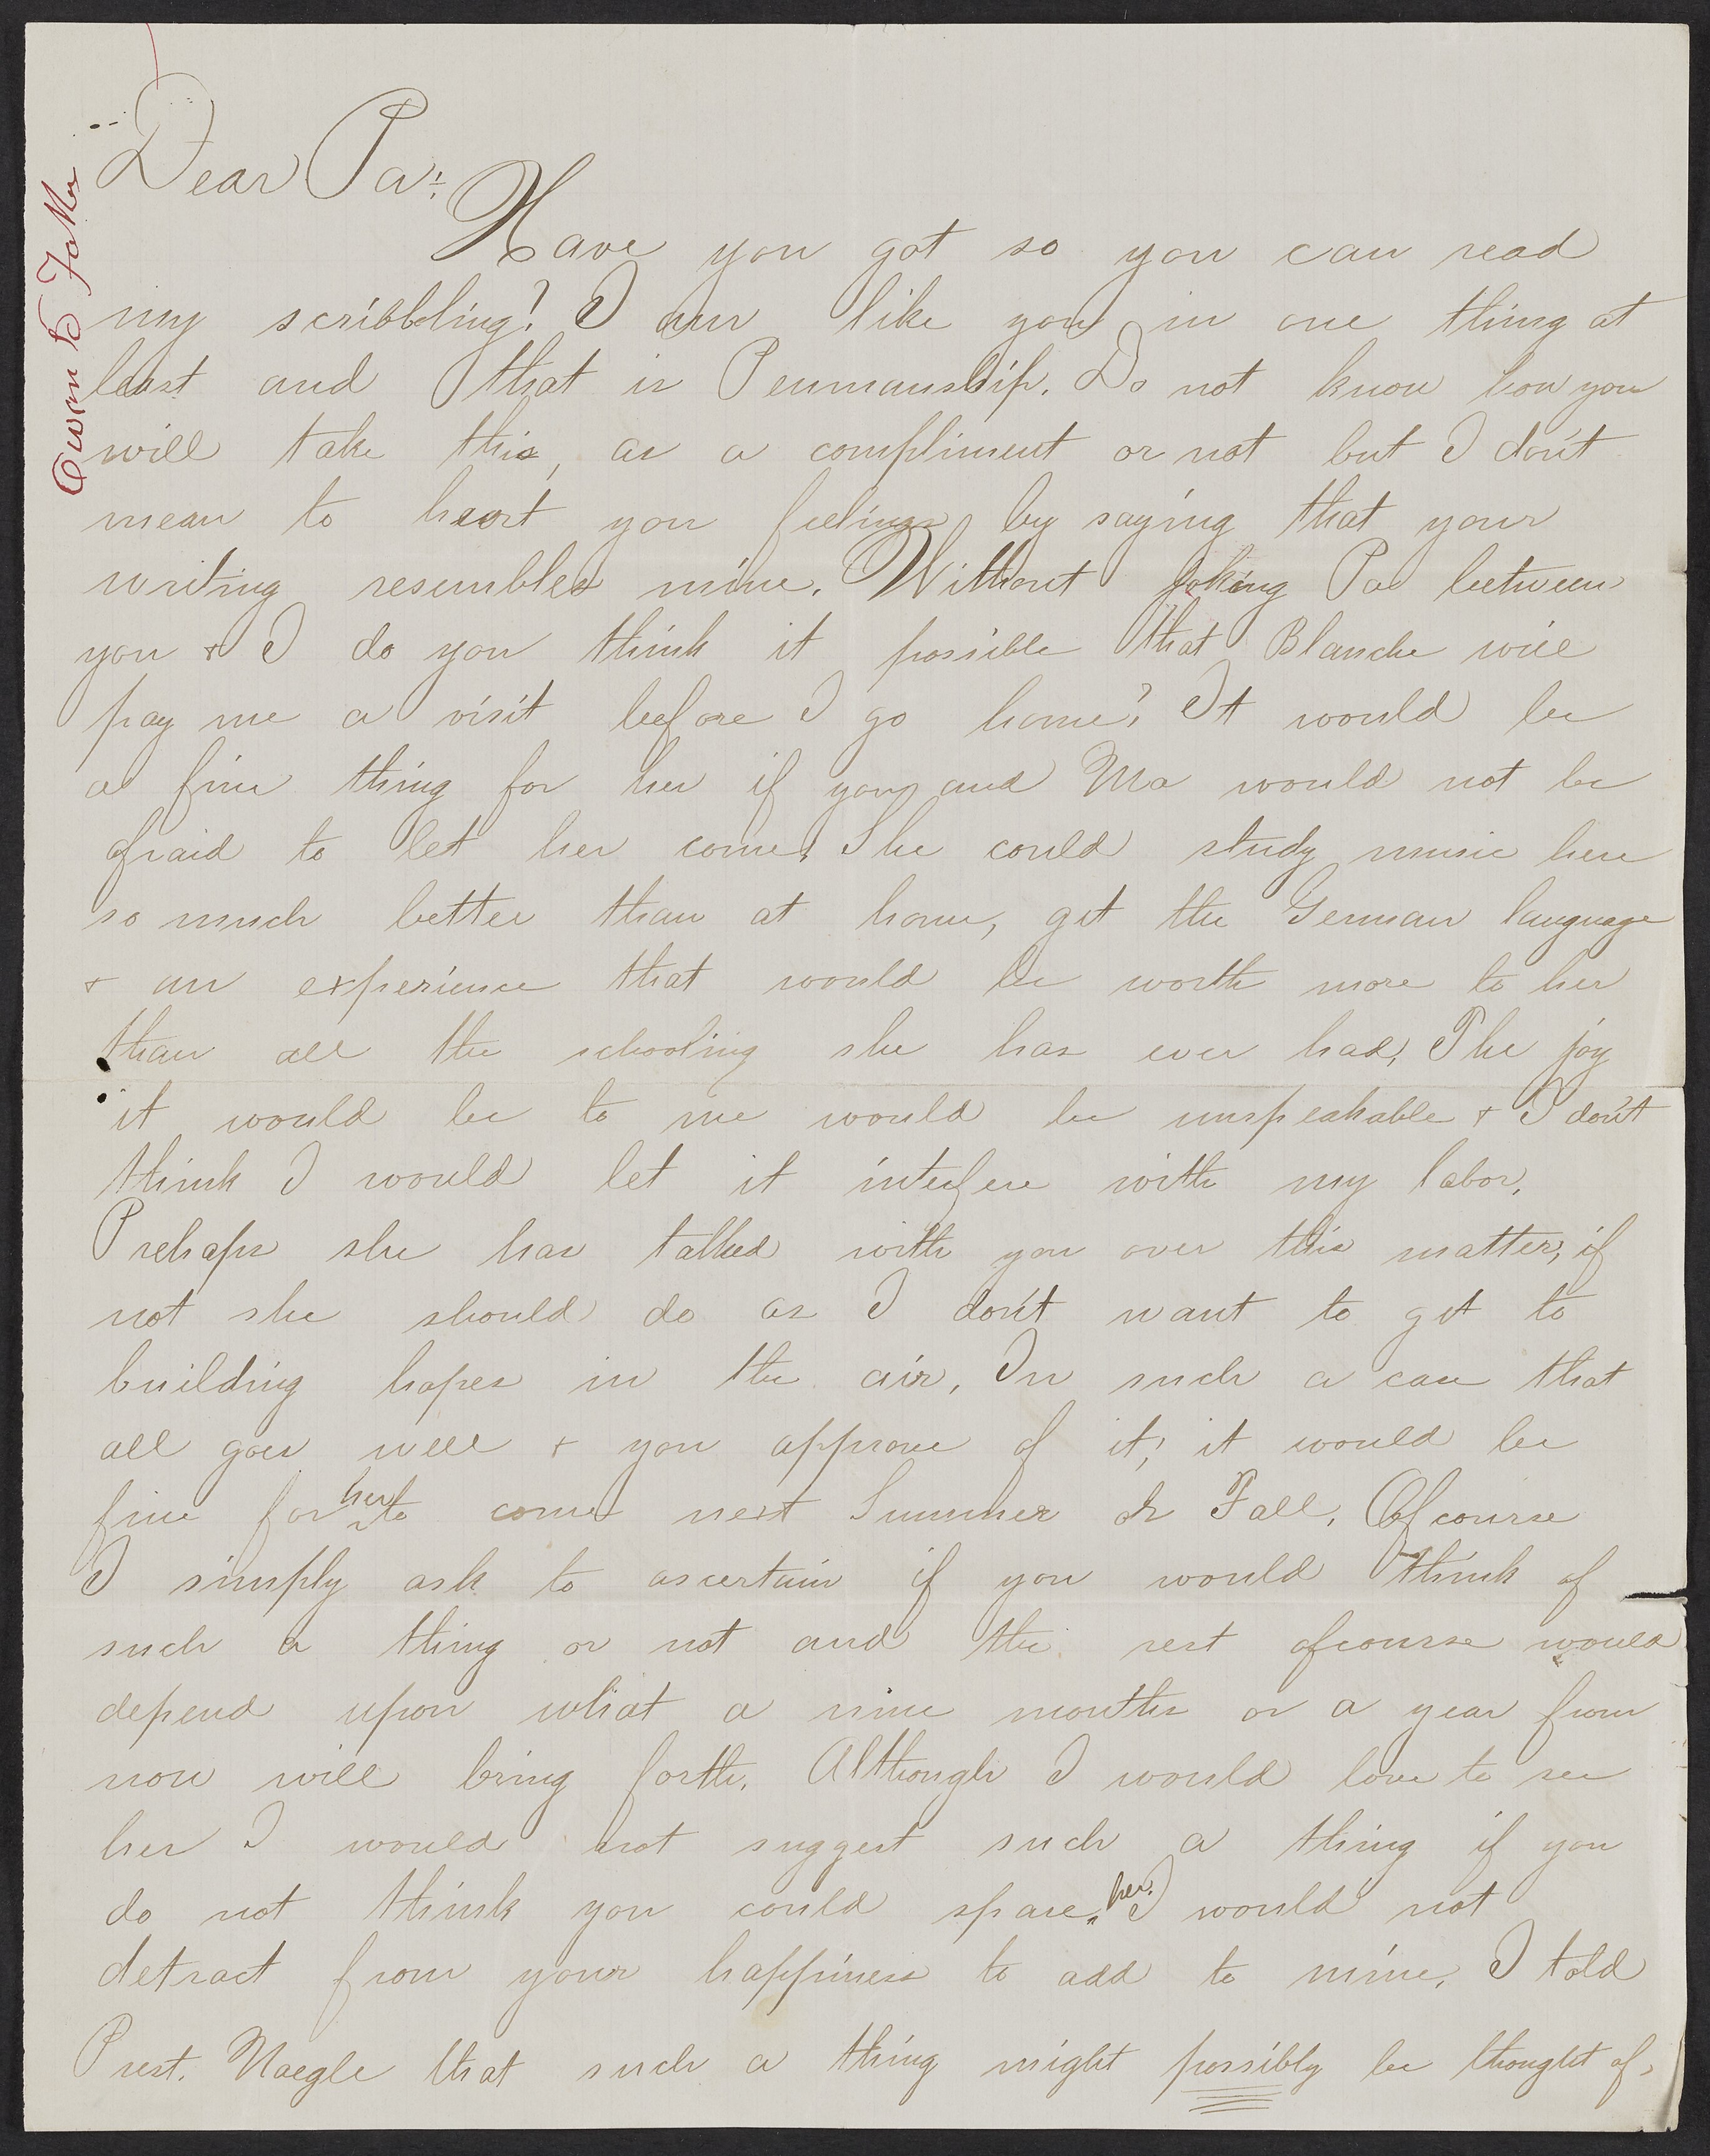 Owen to Father
Dear Pa:
Have you got so you can read
my scribbling? I am like you in one thing at
least and that is Penmanship. Do not know how you
will take this, as a compliment or not but I don't
mean to heart you feelings by saying that your
writing resembles mine. Without joking Pa between
you & I do you think it possible that Blanche will
pay me a visit before I go home? It would be
a fine thing for her if you and Ma would not be
afraid to let her come. She could study music here
so much better than at home, get the German language
& an experience that would be worth more to her
than all the schooling she has ever had. The joy
it would be to me would be unspeakable & I don't
think I would let it intefere with my labor.
Prehaps she has talked with you over this matter, if
not she should do as I don't want to get to
building hopes in the air. In such a case that
all goes well & you approve of it, it would be
fine for her to come next Summer or Fall. Ofcourse
I simply ask to ascertain if you would think of
such a thing or not and the rest ofcourse would
depend upon what a nine months or a year from
now will bring forth. Although I would love to see
her I would not suggest such a thing if you
do not think you could spare her. I would not
detract from your happiness to add to mine. I told
Prest. Naegle that such a thing might possibly be thought of,